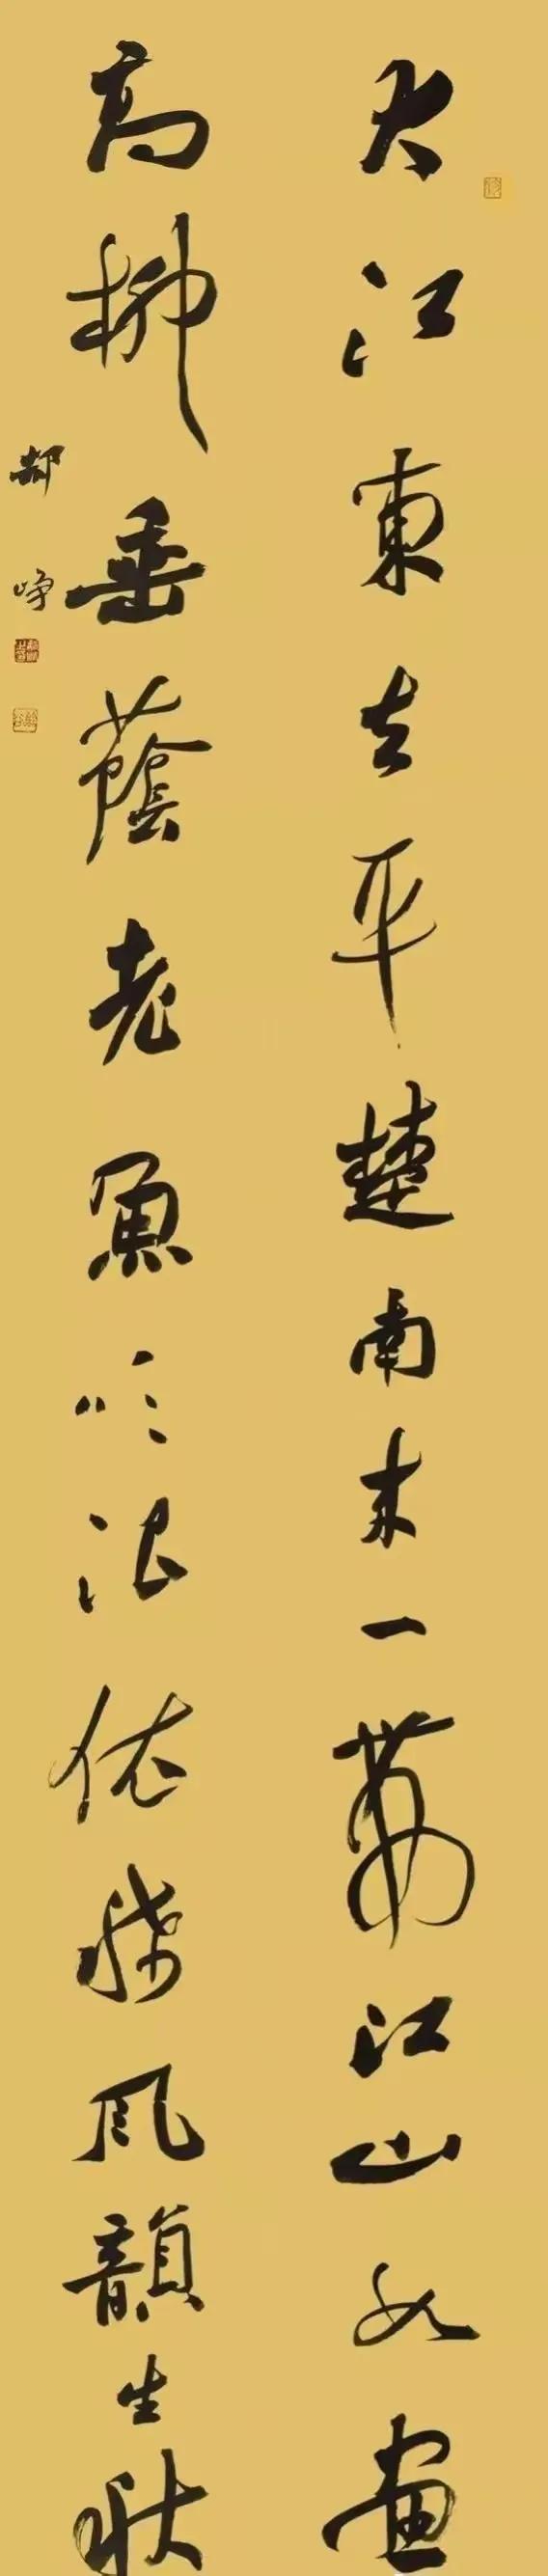 大江東去平楚南來一帶江山如畫
高柳垂蔭老魚吹浪依稀風韻生秋
郝崢